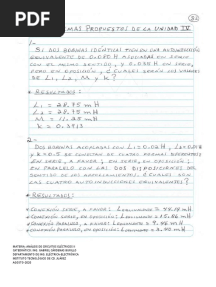 PDF
PROBLEMAS PROPUESTOS DE LA UNIDAD IV
1.-
SI DOS BOBINAS IDÉNTICAS TIENEN UNA AUTOINDUCCIÓN
EQUIVALENTE DE 0.080 H ACOPLADAS EN SERIE
CON EL MISMO SENTIDO, Y 0.035 H EN SERIE,
PERO EN OPOSICIÓN, ¿CUALES SERÁN LOS VALORES
DE L₁, L₂, M Y K?
• RESULTADOS:
L₁ = 28.75 mH
L₂ = 28.75 mH
M = 11.25 mH
K = 0.3913
2.-
DOS BOBINAS ACOPLADAS CON L₁ = 0.02 H,
K = 0.5 SE CONECTAN DE CUATRO FORMAS DIFERENTES:
EN SERIE, A FAVOR; EN SERIE, EN OPOSICIÓN;
EN PARALELO CON LAS DOS DISPOSICIONES DEL
SENTIDO DE SUS ARROLLAMIENTOS. ¿CUALES SON
LAS CUATRO AUTOINDUCCIONES EQUIVALENTES?
• RESULTADOS:
• CONEXIÓN SERIE, A FAVOR:
• CONEXIÓN SERIE, EN OPOSICIÓN:
• CONEXIÓN PARALELO, A FAVOR:
• CONEXIÓN PARALELO,
MATERIA: ANÁLISIS DE CIRCUITOS ELÉCTRICOS II
DEPARTAMENTO DE ING. ELÉCTRICA-ELECTRÓNICA
INSTITUTO TECNOLÓGICO DE CD. JUÁREZ